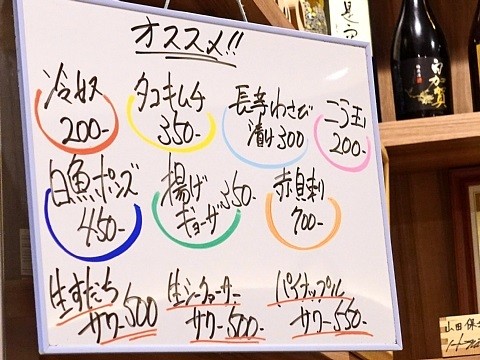 オススメ!!
冷奴
200-
タコキムチ
350-
長芋わさび
漬け300
ニラ玉
200-
白魚ポンズ
450-
揚げ
ギョーザ350-
赤貝刺
700-
生すだち
サワー500
生シークァーサー
サワー500-
パイナップル
サワー550-
山田